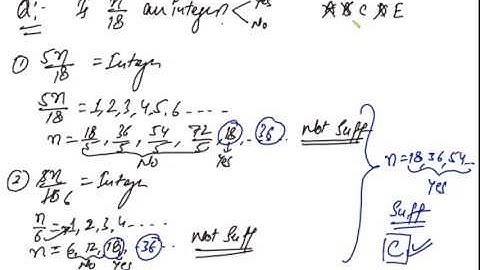 Q:- Is n/18 an integer? < Yes No
A B C D E
① 5n/18 = Integer
5n/18 = 1,2,3,4,5,6 -----
n = 18/5, 36/5, 54/5, 72/5, 18, .. 36. .. Not Suff
No Yes
② 3n/18 6 = Integer
n/6 = 1,2,3,4 .....
n = 6,12,18, 36 .. Not Suff
No Yes
n = 18,36,54...
Yes
Suff
C ✓